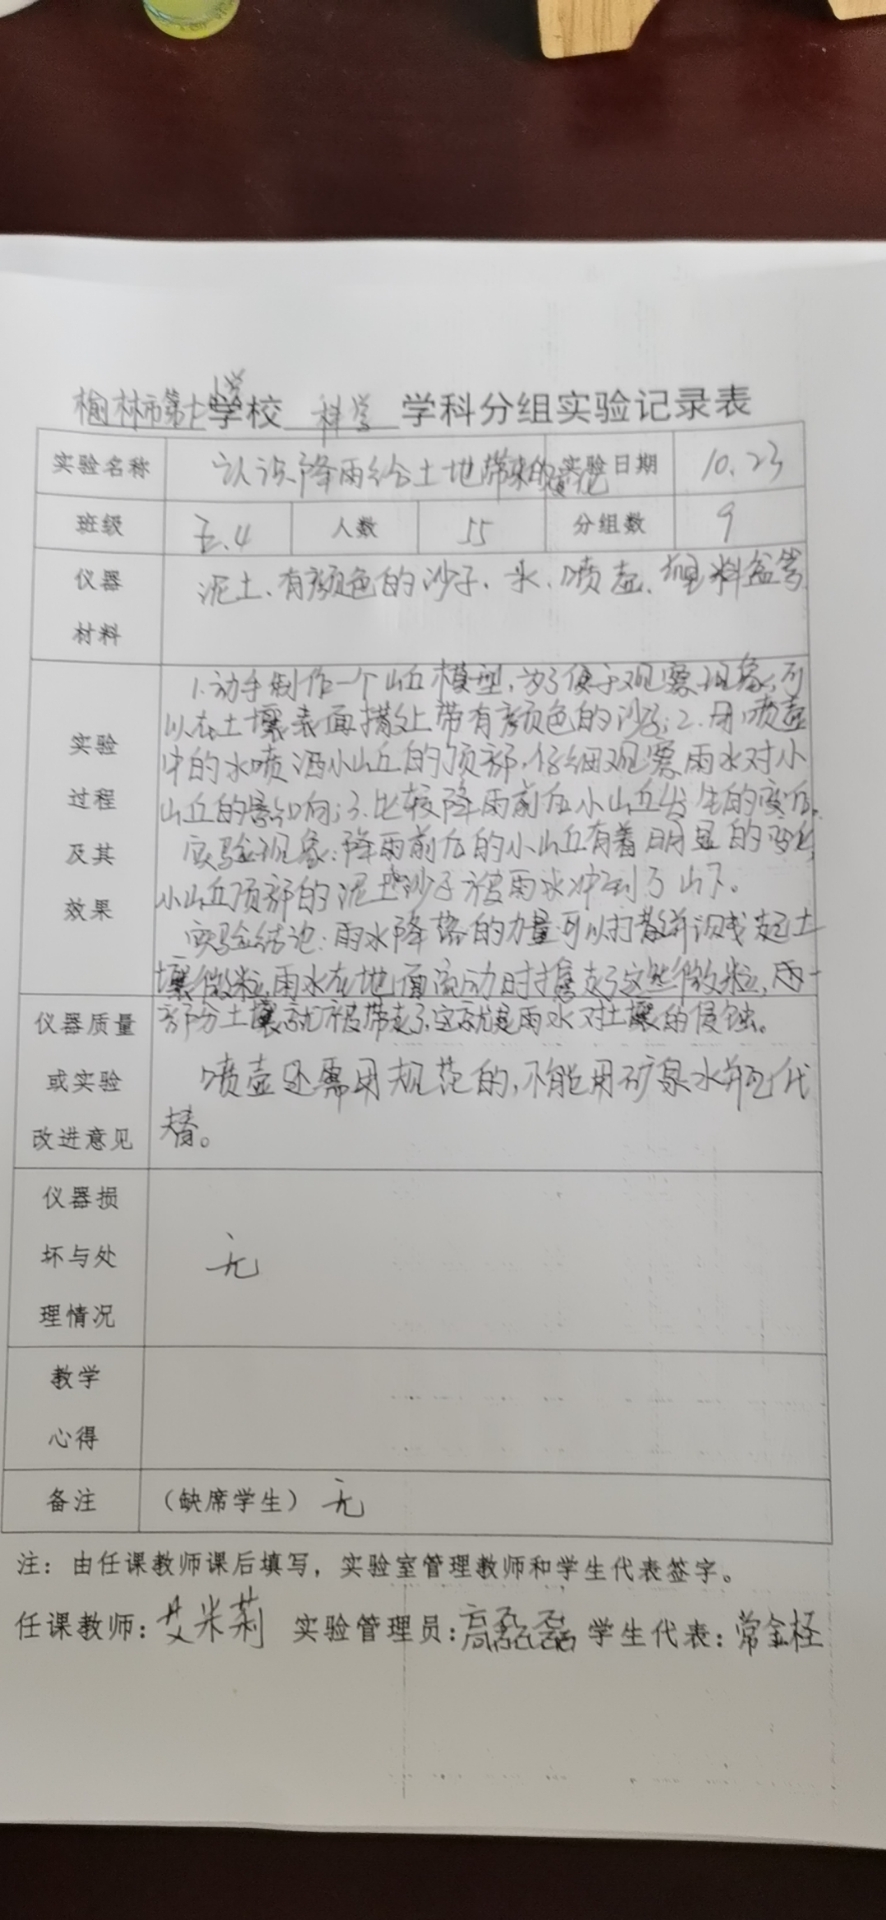 榆林市第十小学校 科学 学科分组实验记录表
实验名称 认识降雨给土地带来的变化 实验日期 10.23
班级 五.4 人数 55 分组数 9
仪器材料 泥土、有颜色的沙子、水、喷壶、塑料盆等
实验过程及其效果
1.动手制作一个山丘模型,为了便于观察现象,可
以在土壤表面撒上带有颜色的沙子;2.用喷壶
中的水喷洒小山丘的顶部,仔细观察雨水对小
山丘的影响;3.比较降雨前后小山丘发生的变化。
实验现象:降雨前后的小山丘有着明显的变化,
小山丘顶部的泥土沙子被雨水冲到了山下。
实验结论:雨水降落的力量可以打散并溅起土
壤微粒,雨水在地面流动时携走了这些微粒,
部分土壤就被带走了,这就是雨水对土壤的侵蚀。
仪器质量或实验改进意见
喷壶还需用规范的,不能用矿泉水瓶代
替。
仪器损坏与处理情况 无
教学心得
备注 (缺席学生) 无
注:由任课教师课后填写,实验室管理教师和学生代表签字。
任课教师:艾米莉 实验管理员:高磊磊 学生代表:常金柽